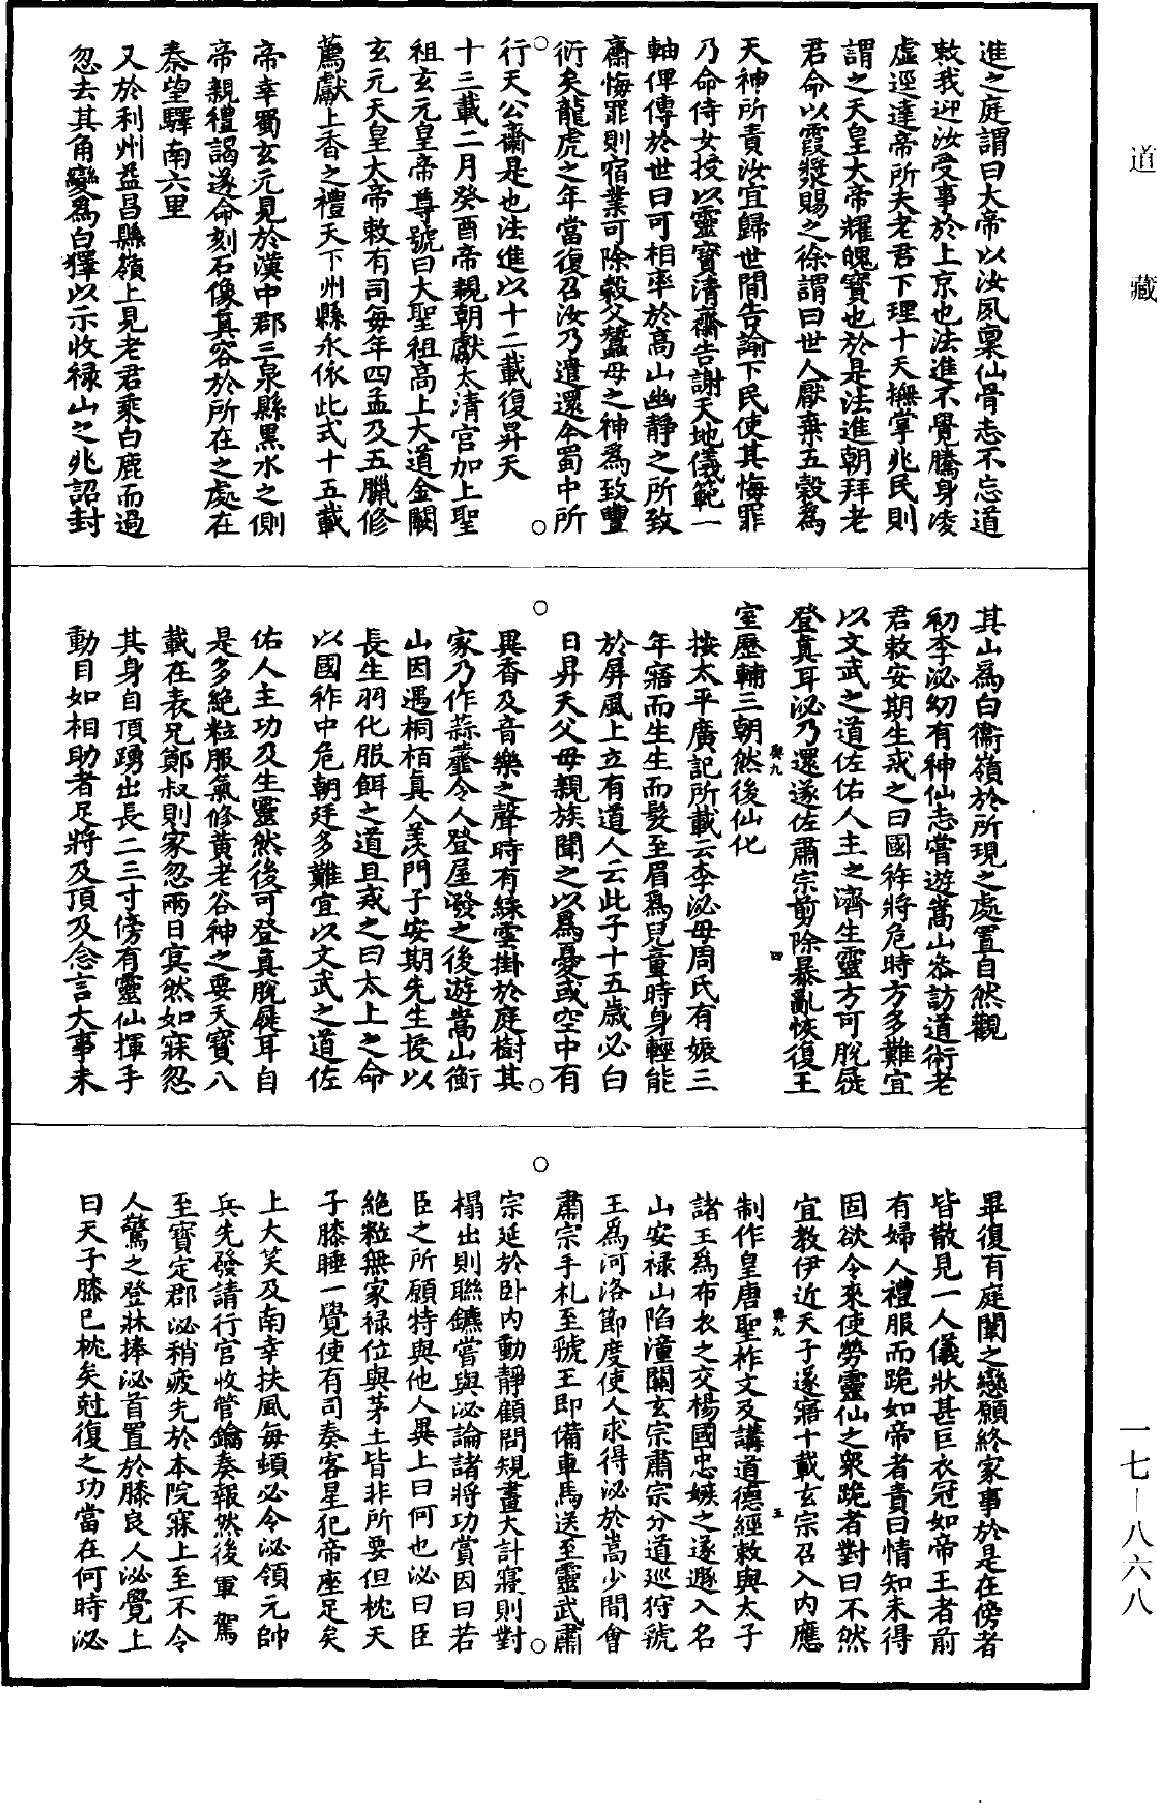 道藏
進之庭謂曰大帝以汝夙稟仙骨志不忘道
敕我迎汝受事於上京也法進不覺騰身凌
虛逕達帝所夫老君下理十天撫掌兆民則
謂之天皇大帝耀魄寶也於是法進朝拜老
君命以霞漿賜之徐謂曰世人厭棄五穀為
天神所責汝宜歸世間告諭下民使其悔罪
乃命侍女授以靈寶清齋告謝天地儀範一
軸俾傳於世曰可相率於高山幽靜之所致
齋悔罪則宿業可除穀父蠶母之神為致豐
衍矣龍虎之年當復召汝乃遣還今蜀中所
行天公齋是也法進以十二載復昇天
十三載二月癸酉帝親朝獻太清宮加上聖
祖玄元皇帝尊號曰大聖祖高上大道金闕
玄元天皇大帝敕有司每年四孟及五臘修
薦獻上香之禮天下州縣永依此式十五載
帝幸蜀玄元見於漢中郡三泉縣黑水之側
帝親禮謁遂命刻石像真容於所在之處在
秦望驛南六里
又於利州益昌縣嶺上見老君乘白鹿而過
忽去其角變為白㹠以示收祿山之兆詔封
其山為白衞嶺於所現之處置自然觀
初李泌幼有神仙志嘗遊嵩山叅訪道術老
君敕安期生戒之曰國祚將危時方多難宜
以文武之道佐佑人主之濟生靈方可脫屣
登真耳泌乃還遂佐肅宗剪除暴亂恢復王
室歷輔三朝然後仙化
與九
四
按太平廣記所載云李泌母周氏有娠三
年寤而生生而髮至眉為兒童時身輕能
於屏風上立有道人云此子十五歲必白
日昇天父母親族聞之以為憂或空中有
異香及音樂之聲時有綵雲掛於庭樹其
家乃作蒜虀令人登屋潑之後遊嵩山衡
山因遇桐栢真人羨門子安期先生授以
長生羽化服餌之道且戒之曰太上之命
以國祚中危朝廷多難宜以文武之道佐
佑人主功及生靈然後可登真脫屣耳自
是多絕粒服氣修黃老谷神之要天寶八
載在表兄鄭叔則家忽兩日冥然如寐忽
其身自頂踴出長二三寸傍有靈仙揮手
動目如相助者足將及頂及念言大事未
畢復有庭闈之戀願終家事於是在傍者
皆散見一人儀狀甚巨衣冠如帝王者前
有婦人禮服而跪如帝者責曰情知未得
固欲令來使勞靈仙之衆跪者對曰不然
宜教伊近天子遂寤十載玄宗召入內應
與九
五
制作皇唐聖祚文及講道德經敕與太子
諸王為布衣之交楊國忠嫉之遂遯入名
山安祿山陷潼關玄宗肅宗分道巡狩虢
王為河洛節度使人求得泌於嵩少間會
肅宗手札至虢王即備車馬送至靈武肅
宗延於卧內動靜顧問規畫大計寢則對
榻出則聯鑣嘗與泌論諸將功賞因曰若
臣之所願特與他人異上曰何也泌曰臣
絕粒無家祿位與茅土皆非所要但枕天
子膝睡一覺使有司奏客星犯帝座足矣
上大笑及南幸扶風每頓必令泌領元帥
兵先發請行宮收管鑰奏報然後軍駕
至寶定郡泌稍疲先於本院寐上至不令
人驚之登牀捧泌首置於膝良人泌覺上
曰天子膝已枕矣尅復之功當在何時泌
一七－八六八